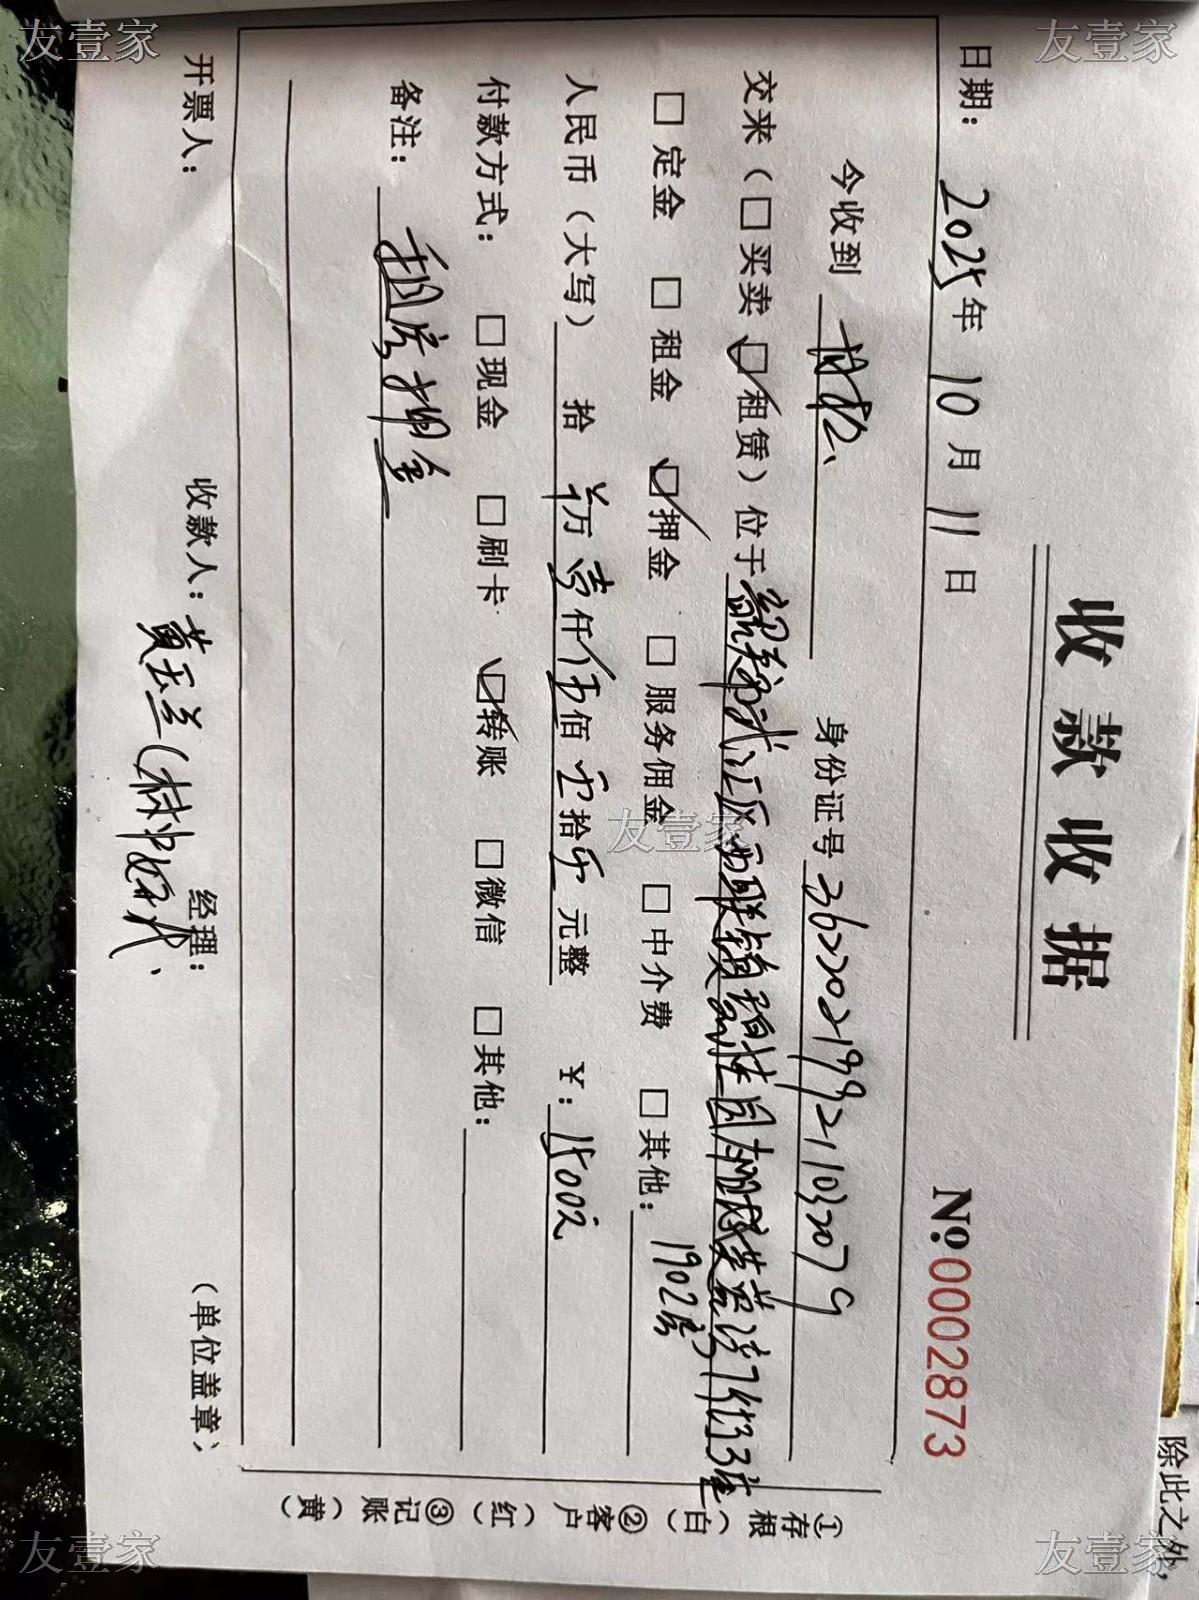 收款收据
No:0002873
日期：2025年10月11日
今收到 身份证号362202199211032079
交来（□买卖 ☑租赁）位于 江区 镇碧桂园 3座
1902房
□定金 □租金 ☑押金 □服务佣金 □中介费 □其他：
人民币（大写） 拾 万 壹仟伍佰零拾零元整 ¥：1500元
付款方式： □现金 □刷卡 ☑转账 □微信 □其他：
备注： 租房押金
开票人： 收款人：黄玉兰 经理： （单位盖章）
①存根（白）②客户（红）③记账（黄）
除此之外，
友壹家
友壹家
友壹家
友壹家
友壹家